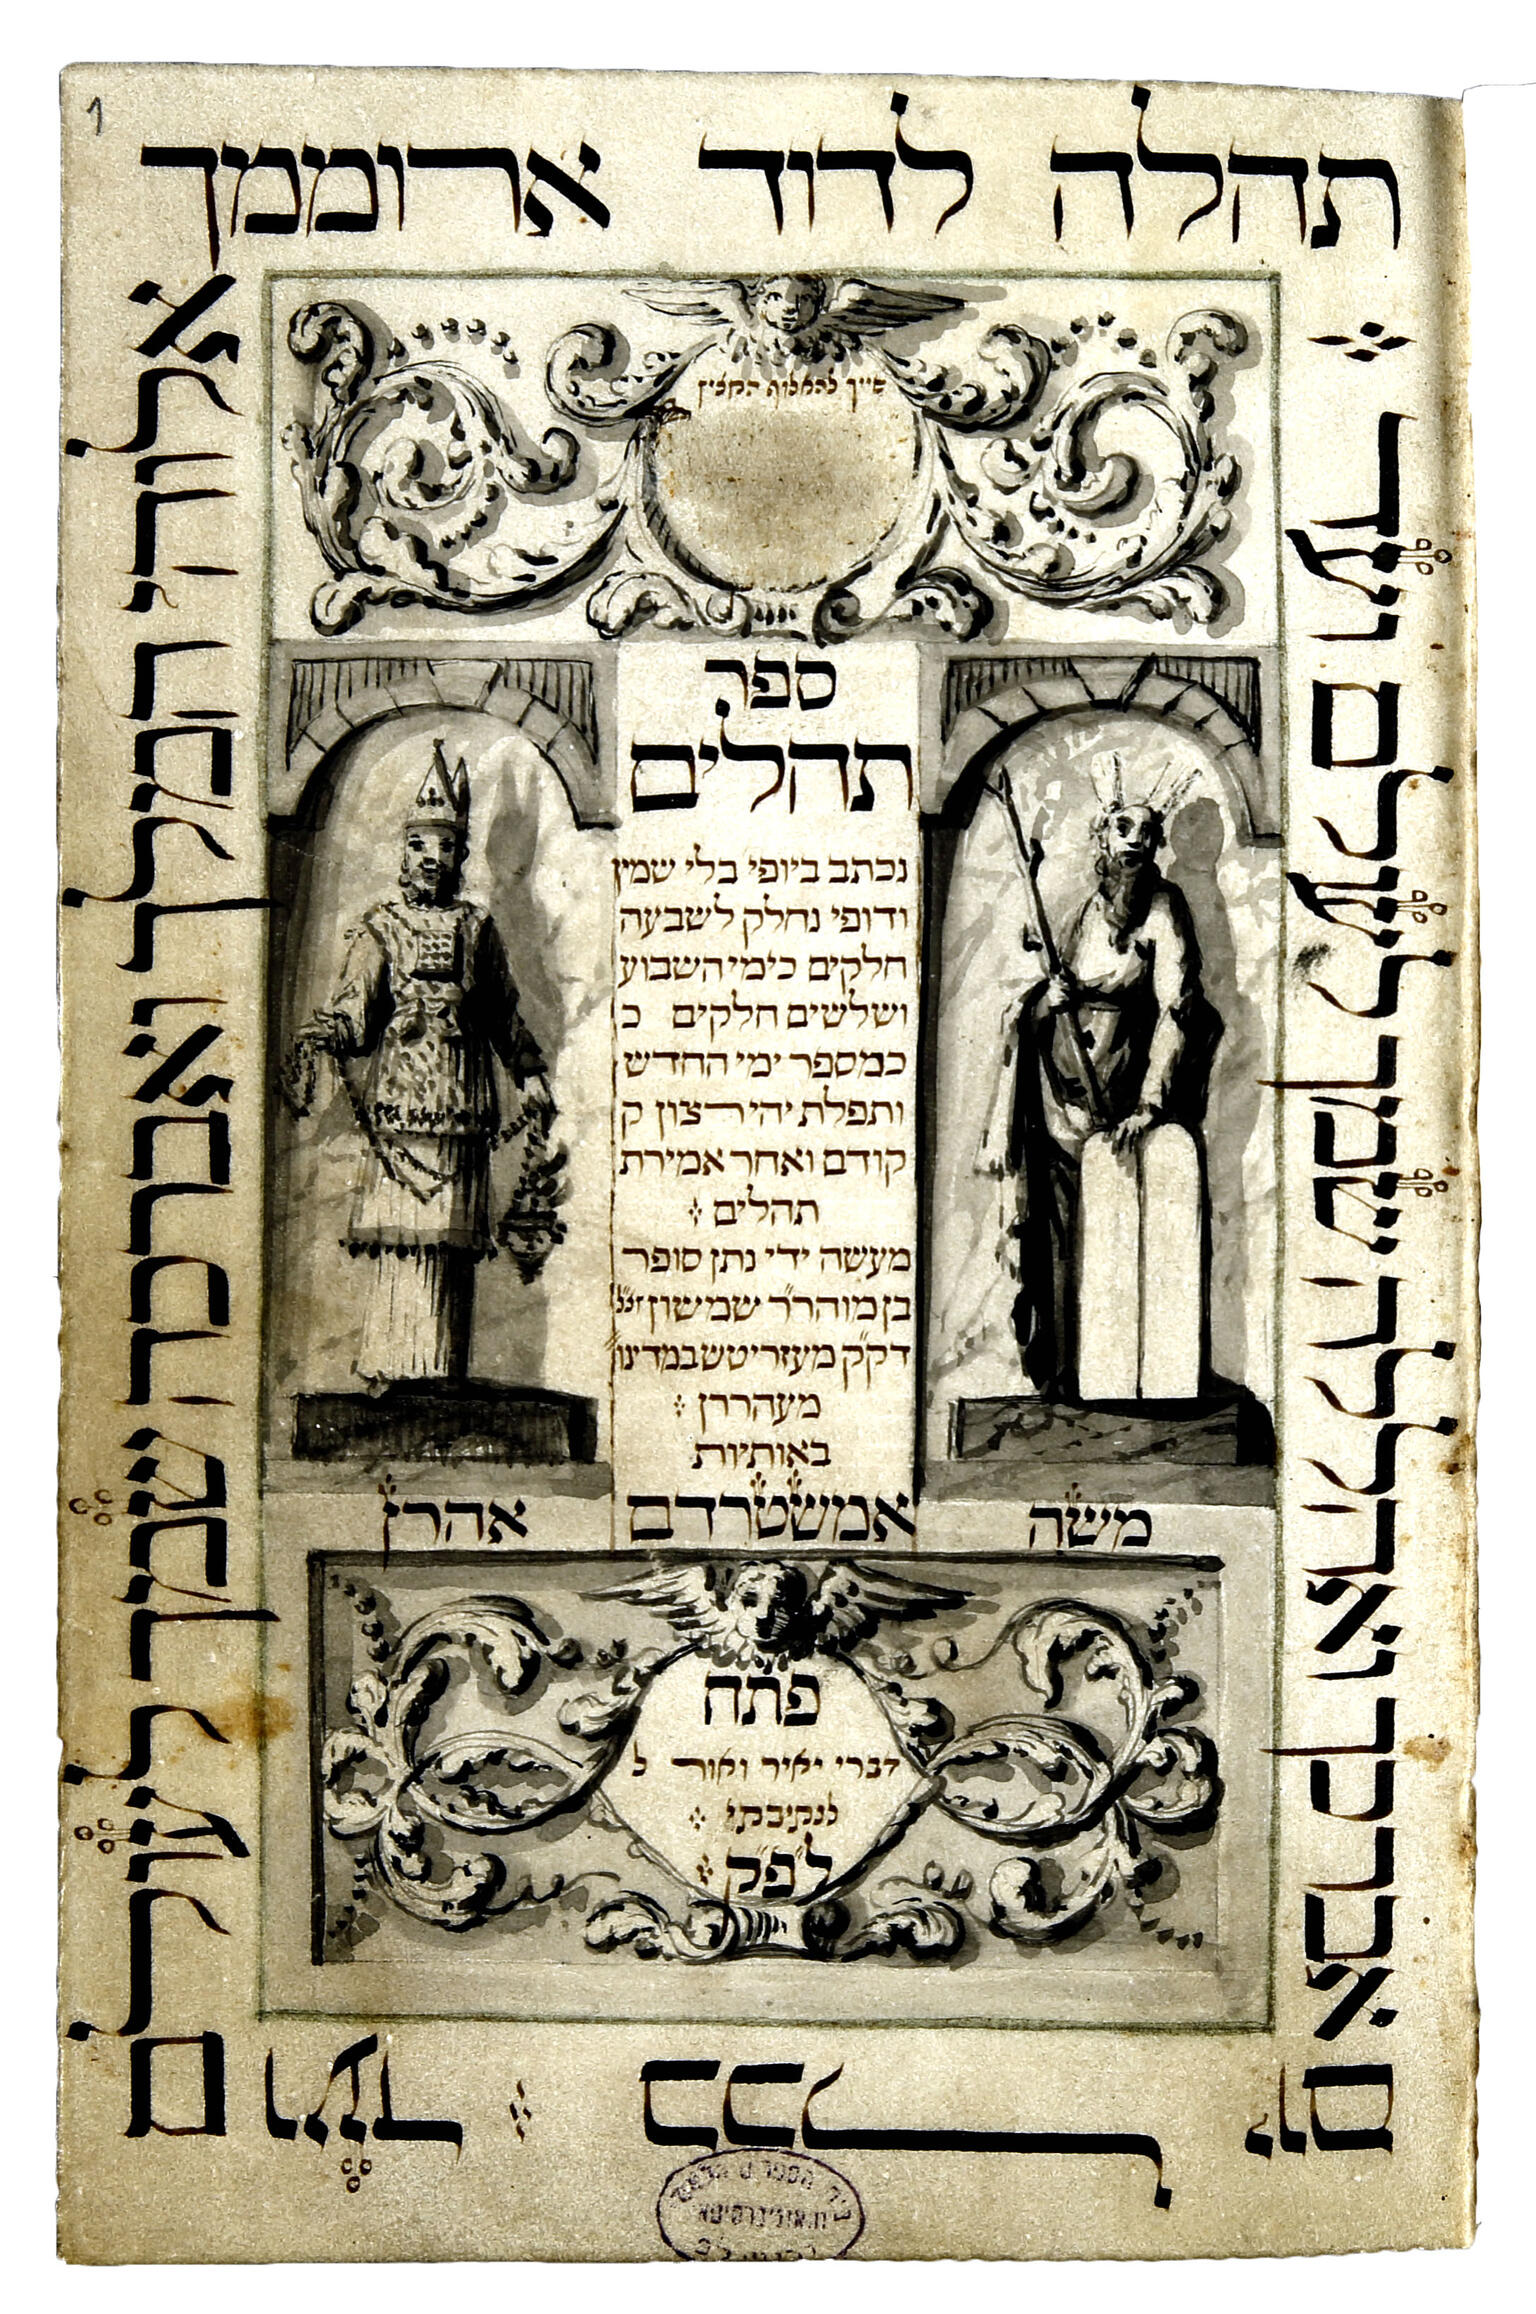 1
תהלה לדוד ארוממך
אלודהי המלך ואברכה שמך לעולם
ועד
בכל
יום אברכך ואהללה שמך לעולם ועד
שייך להאלוף הקצין
ספר
תהלים
נכתב ביופי בלי שמץ
ודופי נחלק לשבעה
חלקים כימי השבוע
ושלשים חלקים כ
כמספר ימי החדש
ותפלת יהי רצון ק
קודם ואחר אמירת
תהלים
מעשה ידי נתן סופר
בן מוהר״ר שמשון זצ״ל
דק״ק מעזריטש במדינו׳
מעהררן
באותיות
אמשטרדם
משה
אהרן
פתח
דברי יאיר ואור ל
לנתיבתי
לפ״ק
בית הספרים